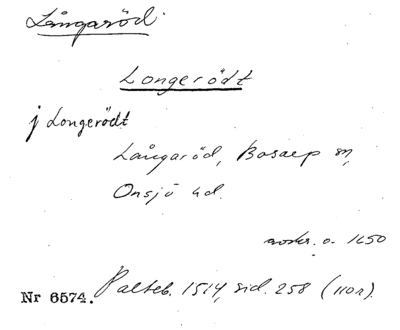 Långaröd
Longerödt
j Longerödt
Långaröd, Bosarp sn,
Onsjö hd.
avskr. o. 1650
Nr 6574. Palteb. 1514, sid. 258 (110r).